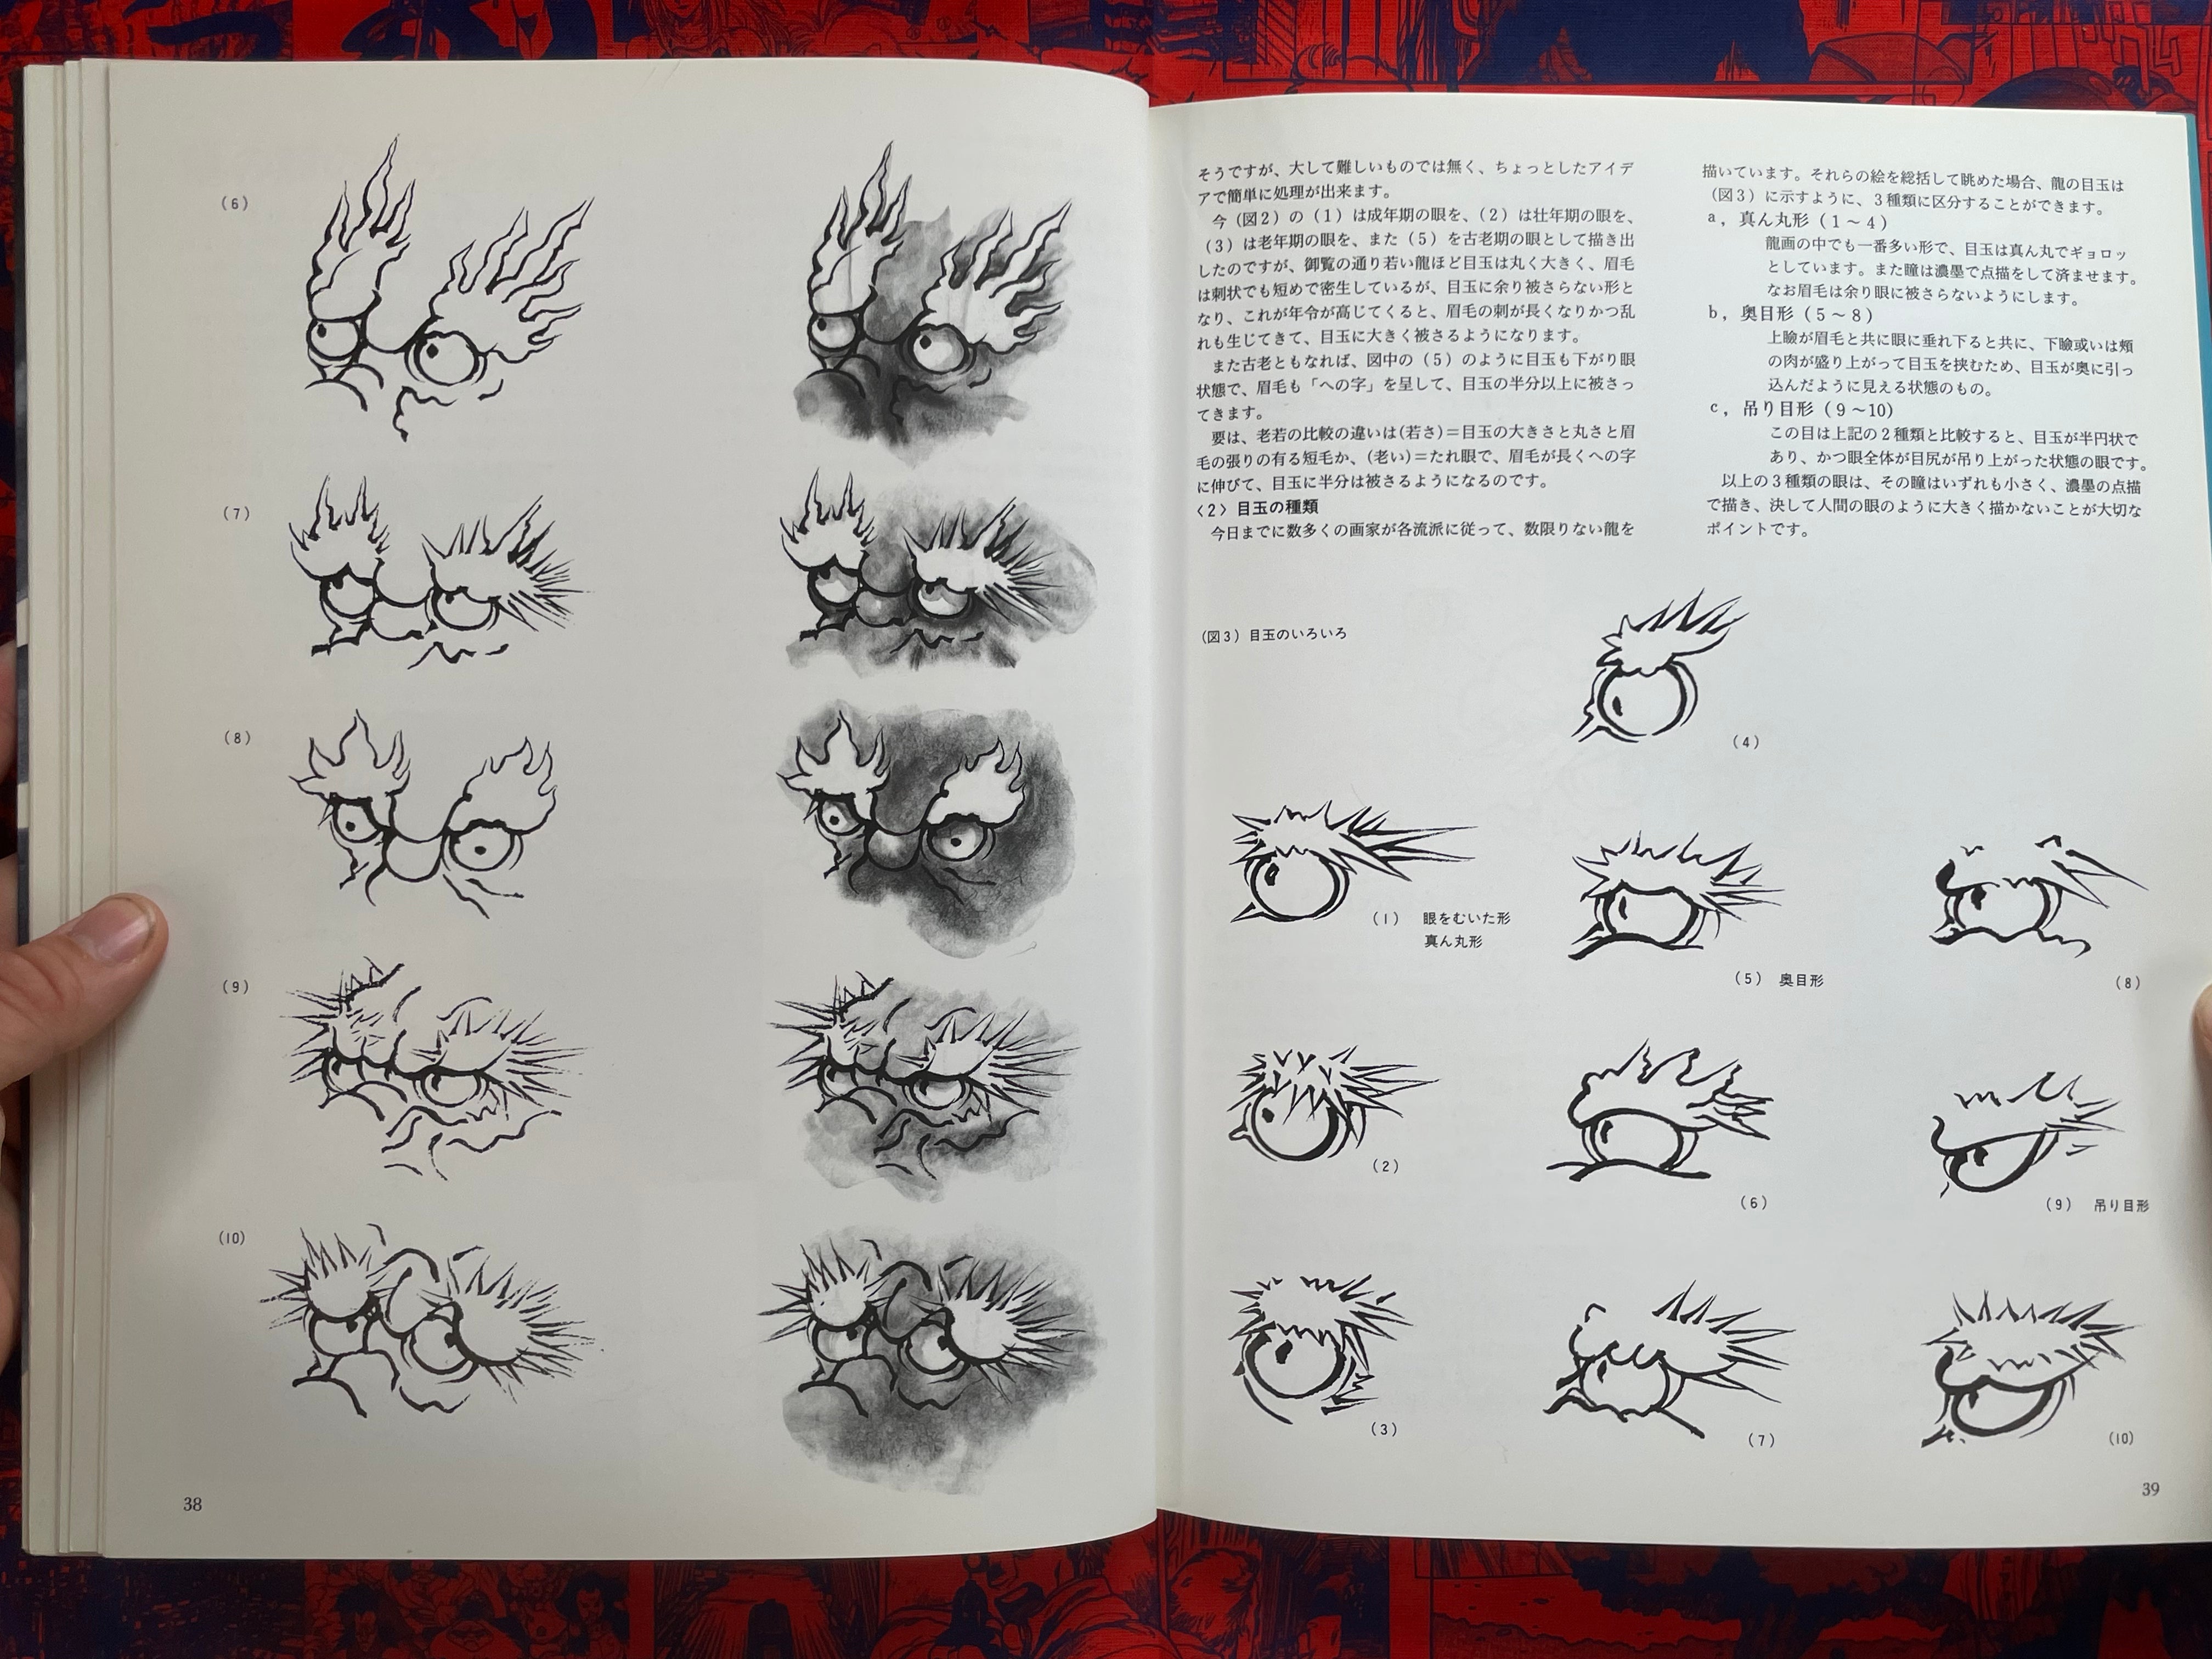 (6)
(7)
(8)
(9)
(10)
38
そうですが、大して難しいものでは無く、ちょっとしたアイデ
アで簡単に処理が出来ます。
今（図2）の（1）は成年期の眼を、（2）は壮年期の眼を、
（3）は老年期の眼を、また（5）を古老期の眼として描き出
したのですが、御覧の通り若い龍ほど目玉は丸く大きく、眉毛
は刺状でも短めで密生しているが、目玉に余り被さらない形と
なり、これが年令が高じてくると、眉毛の刺が長くなりかつ乱
れも生じてきて、目玉に大きく被さるようになります。
また古老ともなれば、図中の（5）のように目玉も下がり眼
状態で、眉毛も「への字」を呈して、目玉の半分以上に被さっ
てきます。
要は、老若の比較の違いは(若さ)＝目玉の大きさと丸さと眉
毛の張りの有る短毛か、(老い)＝たれ眼で、眉毛が長くへの字
に伸びて、目玉に半分は被さるようになるのです。
〈2〉目玉の種類
今日までに数多くの画家が各流派に従って、数限りない龍を
描いています。それらの絵を総括して眺めた場合、龍の目玉は
（図3）に示すように、3種類に区分することができます。
a，真ん丸形（1～4）
龍画の中でも一番多い形で、目玉は真ん丸でギョロッ
としています。また瞳は濃墨で点描をして済ませます。
なお眉毛は余り眼に被さらないようにします。
b，奥目形（5～8）
上瞼が眉毛と共に眼に垂れ下ると共に、下瞼或いは頬
の肉が盛り上がって目玉を挟むため、目玉が奥に引っ
込んだように見える状態のもの。
c，吊り目形（9～10）
この目は上記の2種類と比較すると、目玉が半円状で
あり、かつ眼全体が目尻が吊り上がった状態の眼です。
以上の3種類の眼は、その瞳はいずれも小さく、濃墨の点描
で描き、決して人間の眼のように大きく描かないことが大切な
ポイントです。
(図3) 目玉のいろいろ
(4)
(1) 眼をむいた形
真ん丸形
(5) 奥目形
(8)
(2)
(6)
(9) 吊り目形
(3)
(7)
(10)
39